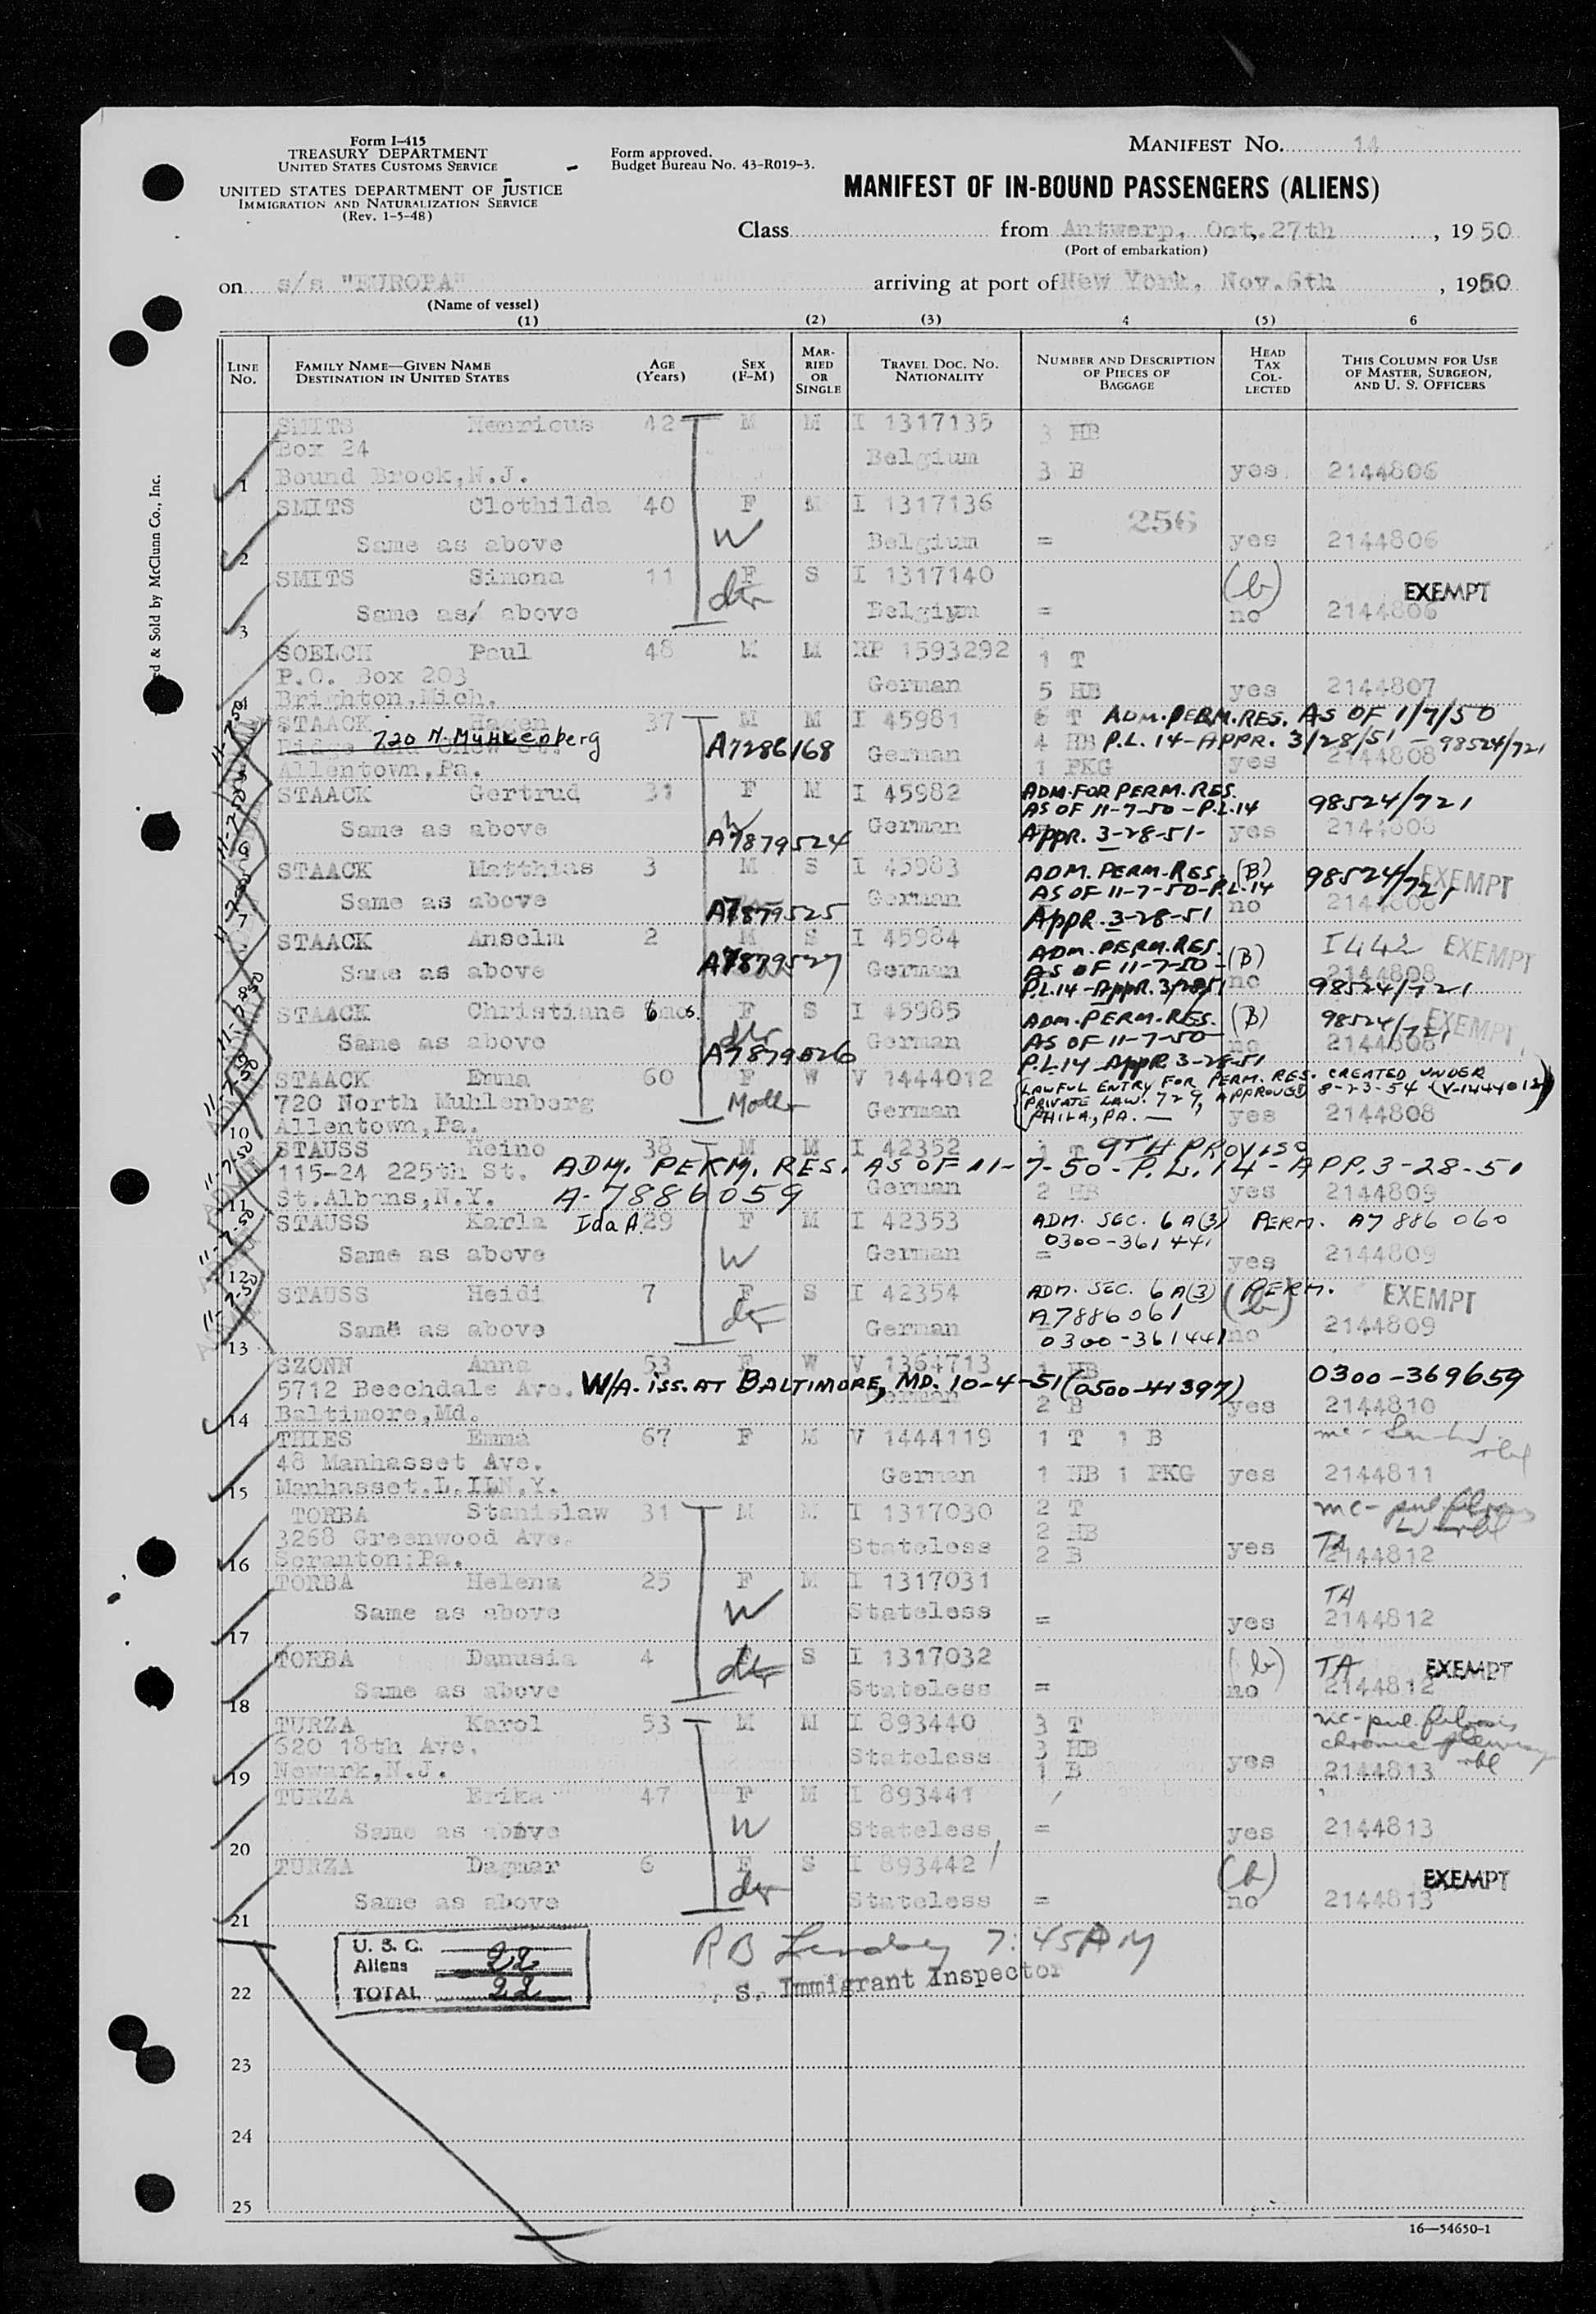 Form I-415
TREASURY DEPARTMENT
UNITED STATES CUSTOMS SERVICE
UNITED STATES DEPARTMENT OF JUSTICE
IMMIGRATION AND NATURALIZATION SERVICE
(Rev. 1-5-48)
Form approved.
Budget Bureau No. 43-R019-3.
MANIFEST NO. 14
MANIFEST OF IN-BOUND PASSENGERS (ALIENS)
Class from Antwerp, Oct. 27th, 1950
(Port of embarkation)
on s/s "EUROPA" arriving at port of New York, Nov. 6th, 1950
(Name of vessel)
(1) (2) (3) 4 (5) 6
LINE NO. FAMILY NAME—GIVEN NAME DESTINATION IN UNITED STATES AGE (Years) SEX (F-M) MARRIED OR SINGLE TRAVEL DOC. NO. NATIONALITY NUMBER AND DESCRIPTION OF PIECES OF BAGGAGE HEAD TAX COLLECTED THIS COLUMN FOR USE OF MASTER, SURGEON, AND U. S. OFFICERS
SMITS Henricus 42 M M I 1317135 3 HB
Box 24 Belgium
1 Bound Brook, N.J. 3 B yes 2144806
SMITS Clothilda 40 F M I 1317136 256
2 Same as above W Belgium = yes 2144806
SMITS Simona 11 F S I 1317140 (b) EXEMPT
3 Same as/ above dtr Belgium = no 2144806
SOELCH Paul 48 M M RP 1593292 1 T
P.O. Box 203 German
4 Brighton, Mich. 5 HB yes 2144807
STAACK Hagen 37 M M I 45981 6 T ADM. PERM. RES. AS OF 1/7/50
720 N. Muhlenberg A7286168 German 4 HB P.L. 14-APPR. 3/28/51 - 98524/721
5 Allentown, Pa. 1 PKG yes 2144808
STAACK Gertrud 31 F M I 45982 ADM. FOR PERM. RES.
AS OF 11-7-50-P.L.14 98524/721
6 Same as above W A7879524 German APPR. 3-28-51- yes 2144808
STAACK Matthias 3 M S I 45983 ADM. PERM. RES. (B) 98524/721 EXEMPT
7 Same as above A7879525 German AS OF 11-7-50-P.L.14 no
APPR. 3-28-51
STAACK Anselm 2 M S I 45984 ADM. PERM. RES. (B) I442 EXEMPT
8 Same as above A7879527 German AS OF 11-7-50- no 2144808
P.L.14-APPR. 3/28/51 98524/721
STAACK Christiane 6 mos. F S I 45985 ADM. PERM. RES. (B) 98524/721 EXEMPT
9 Same as above dtr A7879526 German AS OF 11-7-50- no 2144808
P.L.14 APPR 3-28-51
STAACK Emma 60 F W V 1444012 (LAWFUL ENTRY FOR PERM. RES. CREATED UNDER
720 North Muhlenberg Mother German PRIVATE LAW. 729, APPROVED 8-23-54 (V-1444012)
10 Allentown, Pa. PHILA., PA. yes 2144808
STAUSS Heino 38 M M I 42352 1 T 9TH PROVISO
115-24 225th St. ADM. PERM. RES. AS OF 11-7-50-P.L.14-APP. 3-28-51
11 St. Albans, N.Y. A-7886059 German 2 HB yes 2144809
STAUSS Karla Ida A. 29 F M I 42353 ADM. SEC. 6A(3) PERM. A7886060
0300-361441
12 Same as above W German = yes 2144809
STAUSS Heidi 7 F S I 42354 ADM. SEC. 6A(3) (b) PERM. EXEMPT
A7886061
13 Same as above dtr German 0300-361441 no 2144809
SZONN Anna 53 F W V 1364713 1 HB 0300-369659
5712 Beechdale Ave. W/A. ISS. AT BALTIMORE, MD. 10-4-51 (0500-41397)
14 Baltimore, Md. German 2 B yes 2144810
THIES Emma 67 F M V 1444119 1 T 1 B
48 Manhasset Ave.
15 Manhasset, L.I.N.Y. German 1 HB 1 PKG yes 2144811
TORBA Stanislaw 31 M M I 1317030 2 T mc- pul. fibrosis
3268 Greenwood Ave. Stateless 2 HB
16 Scranton, Pa. 2 B yes TA 2144812
TORBA Helena 25 F M I 1317031 TA
17 Same as above W Stateless = yes 2144812
TORBA Danusia 4 F S I 1317032 (b) TA EXEMPT
18 Same as above dtr Stateless = no 2144812
TURZA Karol 53 M M I 893440 3 T mc- pul. fibrosis
620 18th Ave. Stateless 3 HB chronic pleurisy
19 Newark, N.J. 1 B yes 2144813 rbl
TURZA Erika 47 F M I 893441
20 Same as above W Stateless = yes 2144813
TURZA Dagmar 6 F S I 893442 (b) EXEMPT
21 Same as above dtr Stateless = no 2144813
U. S. C.
Aliens 22
TOTAL 22
RB 7:45 AM
S. Immigrant Inspector
22
23
24
25
16—54650-1
ed & Sold by McClunn Co., Inc.